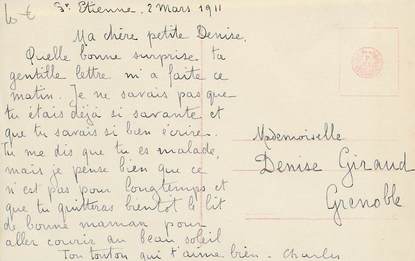 10 €
St Etienne. 2 Mars 1911
Ma chère petite Denise.
Quelle bonne surprise ta
gentille lettre m'a faite ce
matin. Je ne savais pas que
tu étais déjà si savante et
que tu savais si bien écrire.
Tu me dis que tu es malade,
mais je pense bien que ce
n'est pas pour longtemps et
que tu quitteras bientôt le lit
de bonne maman pour
aller courir au beau soleil
Ton tonton qui t'aime bien. Charles
Mademoiselle
Denise Giraud
Grenoble